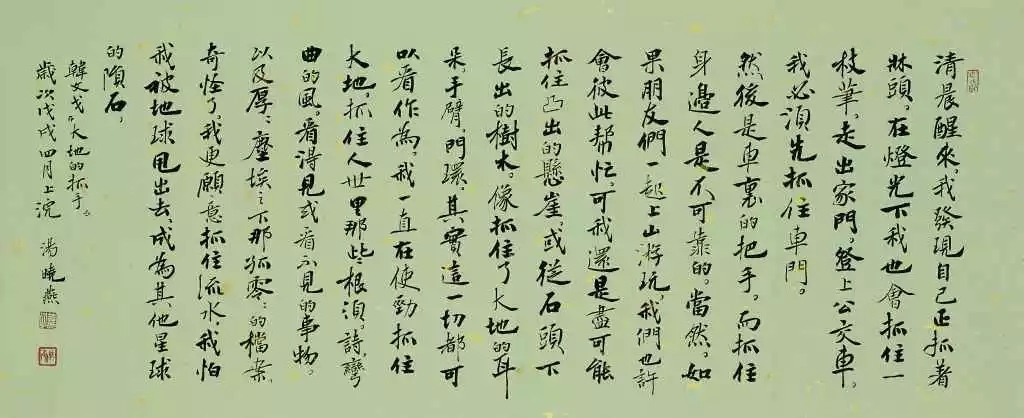 清晨醒來。我發現自己正抓著
牀頭。在燈光下我也會抓住一
枝筆。走出家門。登上公交車。
我必須先抓住車門。
然後是車裏的把手。而抓住
身邊人是不可靠的。當然。如
果朋友們一起上山游玩。我們也許
會彼此幫忙。可我還是盡可能
抓住凸出的懸崖。或從石頭下
長出的樹木。像抓住了大地的耳
朵。手臂。門環。其實這一切都可
以看作為。我一直在使勁抓住
大地。抓住人世里那些根須。詩。彎
曲的風。看得見或看不見的事物。
以及厚厚塵埃之下那孤零零的檔案。
奇怪了。我更願意抓住流水。我怕
我被地球甩出去。成為其他星球
的隕石。
韓文戈《大地的抓手》。
歲次戊戌四月上浣 湯曉燕